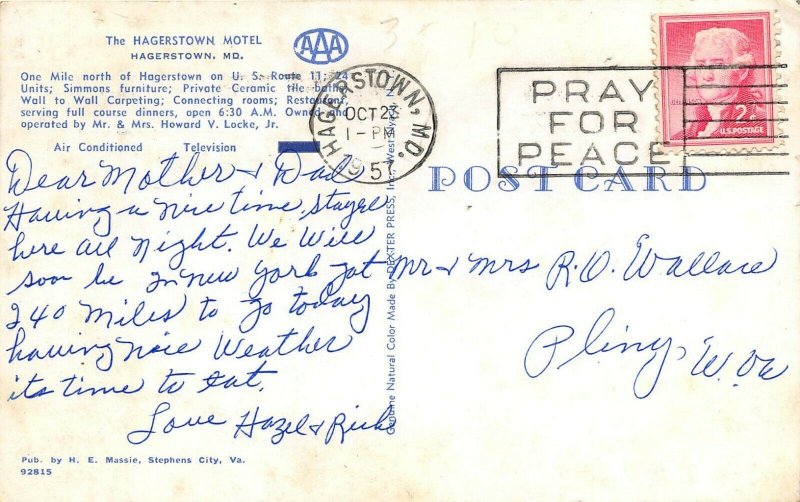 The HAGERSTOWN MOTEL
HAGERSTOWN, MD.
AAA
One Mile north of Hagerstown on U. S. Route 11; 24
Units; Simmons furniture; Private Ceramic tile baths
Wall to Wall Carpeting; Connecting rooms; Restaurant,
serving full course dinners, open 6:30 A.M. Owned and
operated by Mr. & Mrs. Howard V. Locke, Jr.
Air Conditioned Television
HAGERSTOWN, MD.
OCT 23
1-PM
1957
PRAY
FOR
PEACE
2¢
U.S. POSTAGE
POST CARD
Dear Mother & Dad
Having a nice time, stayed
here all night. We will
soon be in new york got
240 miles to go today
having nice weather
its time to eat.
Love Hazel & Rick
Mr & Mrs R.O. Wallace
Pliny, W. Va
Genuine Natural Color Made By DEXTER PRESS, Inc., West
Pub. by H. E. Massie, Stephens City, Va.
92815